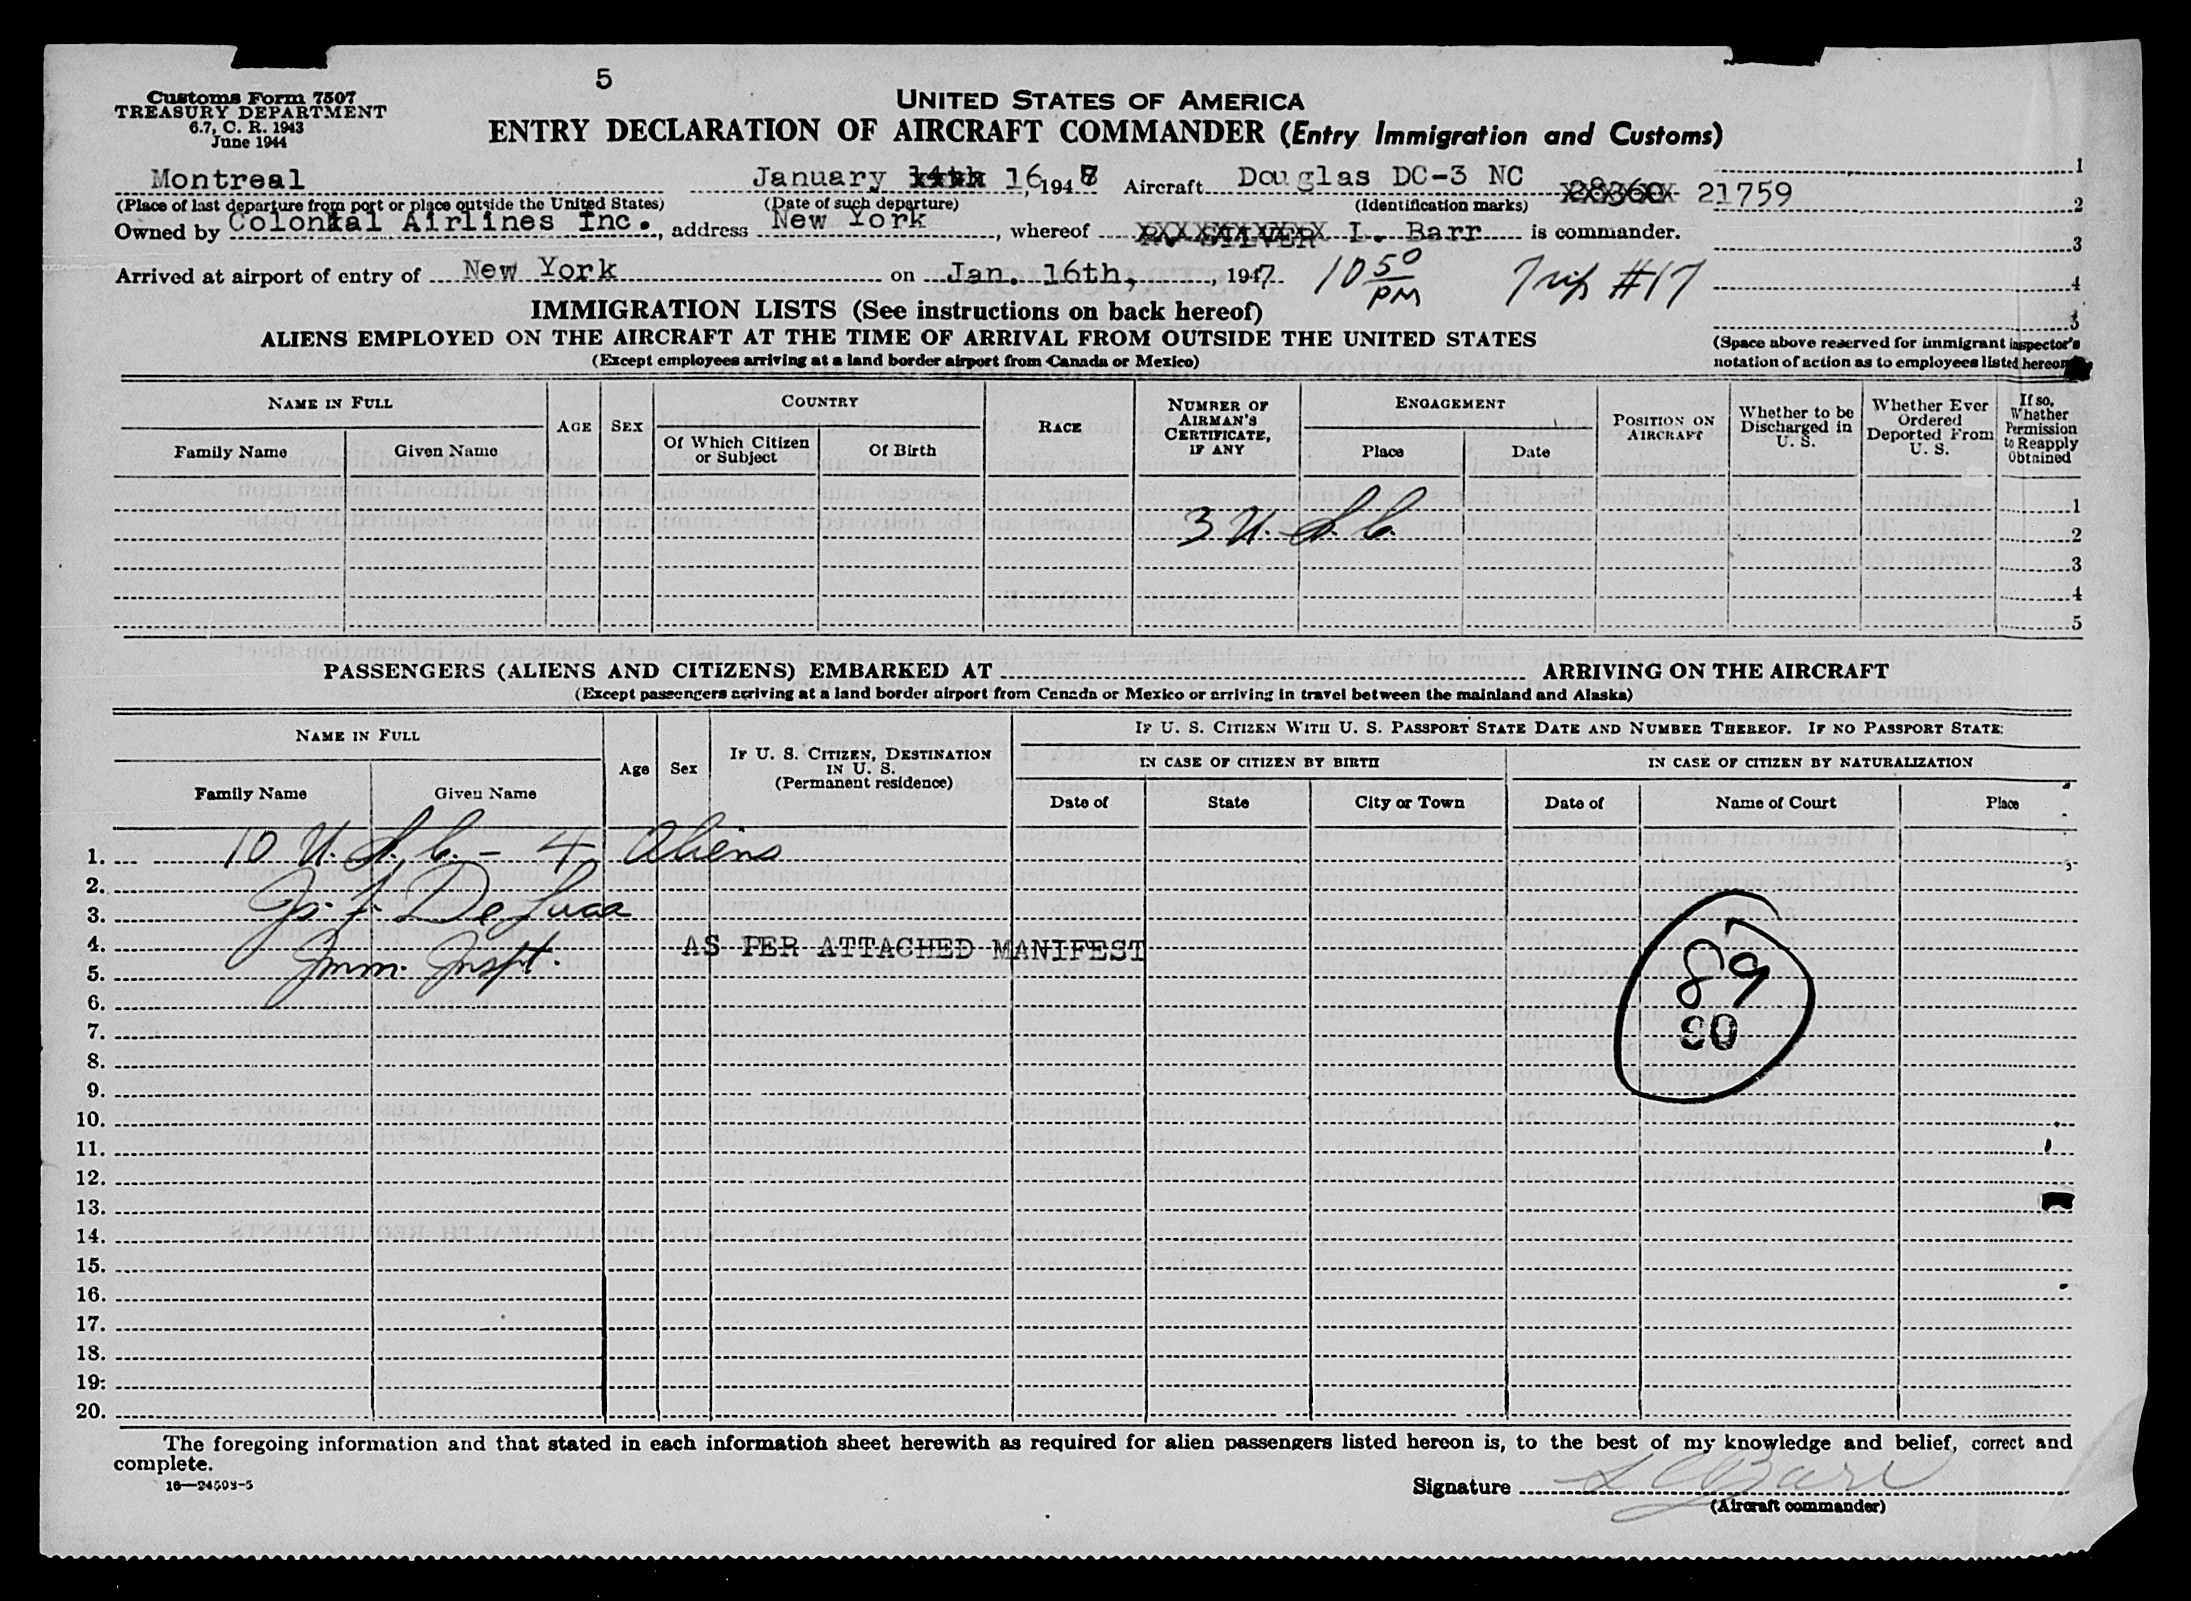 5
Customs Form 7507
TREASURY DEPARTMENT
6.7, C. R. 1943
June 1944
UNITED STATES OF AMERICA
ENTRY DECLARATION OF AIRCRAFT COMMANDER (Entry Immigration and Customs)
Montreal January 16, 194 Aircraft Douglas DC-3 NC 28360 21759
(Place of last departure from port or place outside the United States) (Date of such departure) (Identification marks)
Owned by Colonial Airlines Inc., address New York, whereof I. Barr is commander.
Arrived at airport of entry of New York on Jan. 16th, 1947 10 50 PM Trip #17
1
2
3
4
5
(Space above reserved for immigrant inspector's
notation of action as to employees listed hereon)
IMMIGRATION LISTS (See instructions on back hereof)
ALIENS EMPLOYED ON THE AIRCRAFT AT THE TIME OF ARRIVAL FROM OUTSIDE THE UNITED STATES
(Except employees arriving at a land border airport from Canada or Mexico)
NAME IN FULL
Family Name Given Name
AGE SEX
COUNTRY
Of Which Citizen or Subject Of Birth
RACE
NUMBER OF AIRMAN'S CERTIFICATE, IF ANY
ENGAGEMENT
Place Date
POSITION ON AIRCRAFT
Whether to be Discharged in U. S.
Whether Ever Ordered Deported From U. S.
If so, Whether Permission to Reapply Obtained
3 U. S. C.
1
2
3
4
5
PASSENGERS (ALIENS AND CITIZENS) EMBARKED AT ARRIVING ON THE AIRCRAFT
(Except passengers arriving at a land border airport from Canada or Mexico or arriving in travel between the mainland and Alaska)
NAME IN FULL
Family Name Given Name
Age Sex
IF U. S. CITIZEN, DESTINATION IN U. S.
(Permanent residence)
IF U. S. CITIZEN WITH U. S. PASSPORT STATE DATE AND NUMBER THEREOF. IF NO PASSPORT STATE:
IN CASE OF CITIZEN BY BIRTH IN CASE OF CITIZEN BY NATURALIZATION
Date of State City or Town Date of Name of Court Place
1. 10 U. S. C. - 4 Aliens
2.
3. De Luca
4. AS PER ATTACHED MANIFEST
5. Imm. Inspt.
89
90
6.
7.
8.
9.
10.
11.
12.
13.
14.
15.
16.
17.
18.
19.
20.
The foregoing information and that stated in each information sheet herewith as required for alien passengers listed hereon is, to the best of my knowledge and belief, correct and
complete.
16—24503-5
Signature
(Aircraft commander)